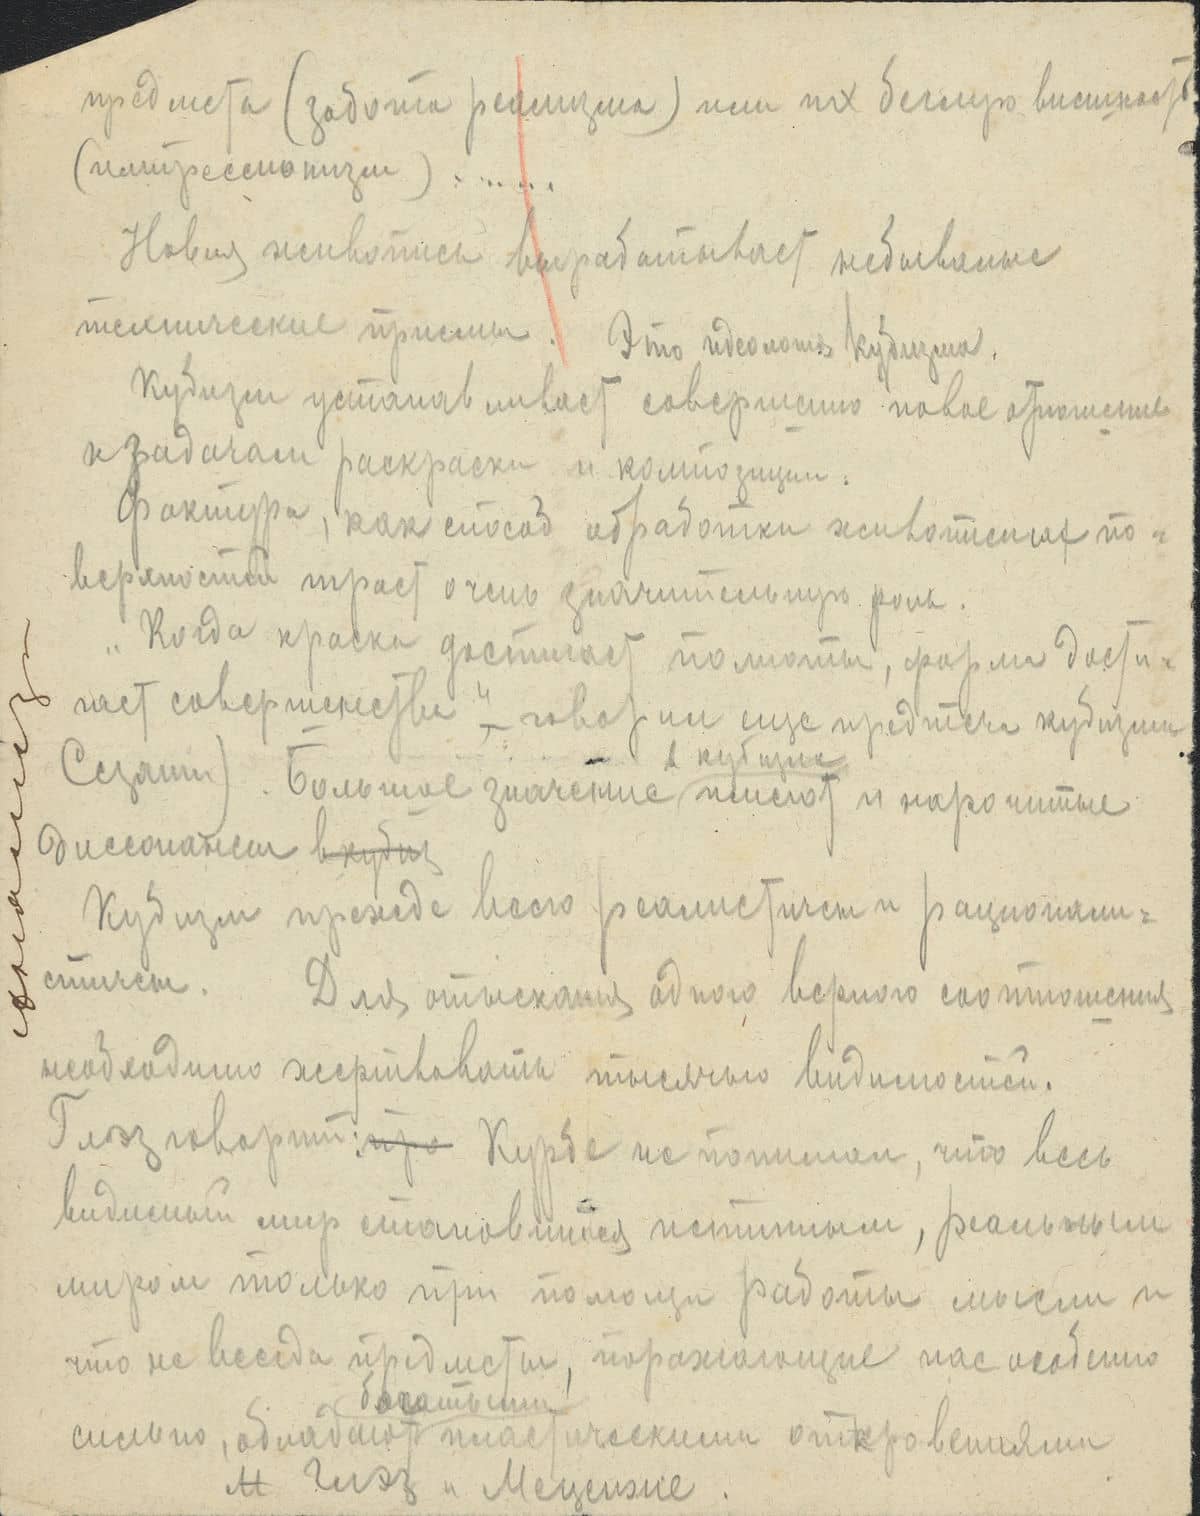 предмета (забота реализма) или их беглую внешность
(импрессионизм) . . . . .
Новая живопись вырабатывает небывалые
технические приемы. Это идеология кубизма.
Кубизм устанавливает совершенно новое отношение
к задачам раскраски и композиции.
Фактура, как способ обработки живописных по-
верхностей играет очень значительную роль.
„Когда краска достигает полноты, форма дости-
гает совершенства" – говорил еще предтеча кубизма
Сезанн). Большое значение в кубизме имеют и нарочитые
диссонансы в кубиз
Кубизм прежде всего реалистичен и рационали-
стичен. Для отыскания одного верного соотношения
необходимо жертвовать тысячью видимостей.
Глэз говорит: про Курбе не понимал, что весь
видимый мир становится истинным, реальным
миром только при помощи работы мысли и
что не всегда предметы, поражающие нас особенно
сильно, обладают богатыми пластическими откровениями
Глэз и Меценже.